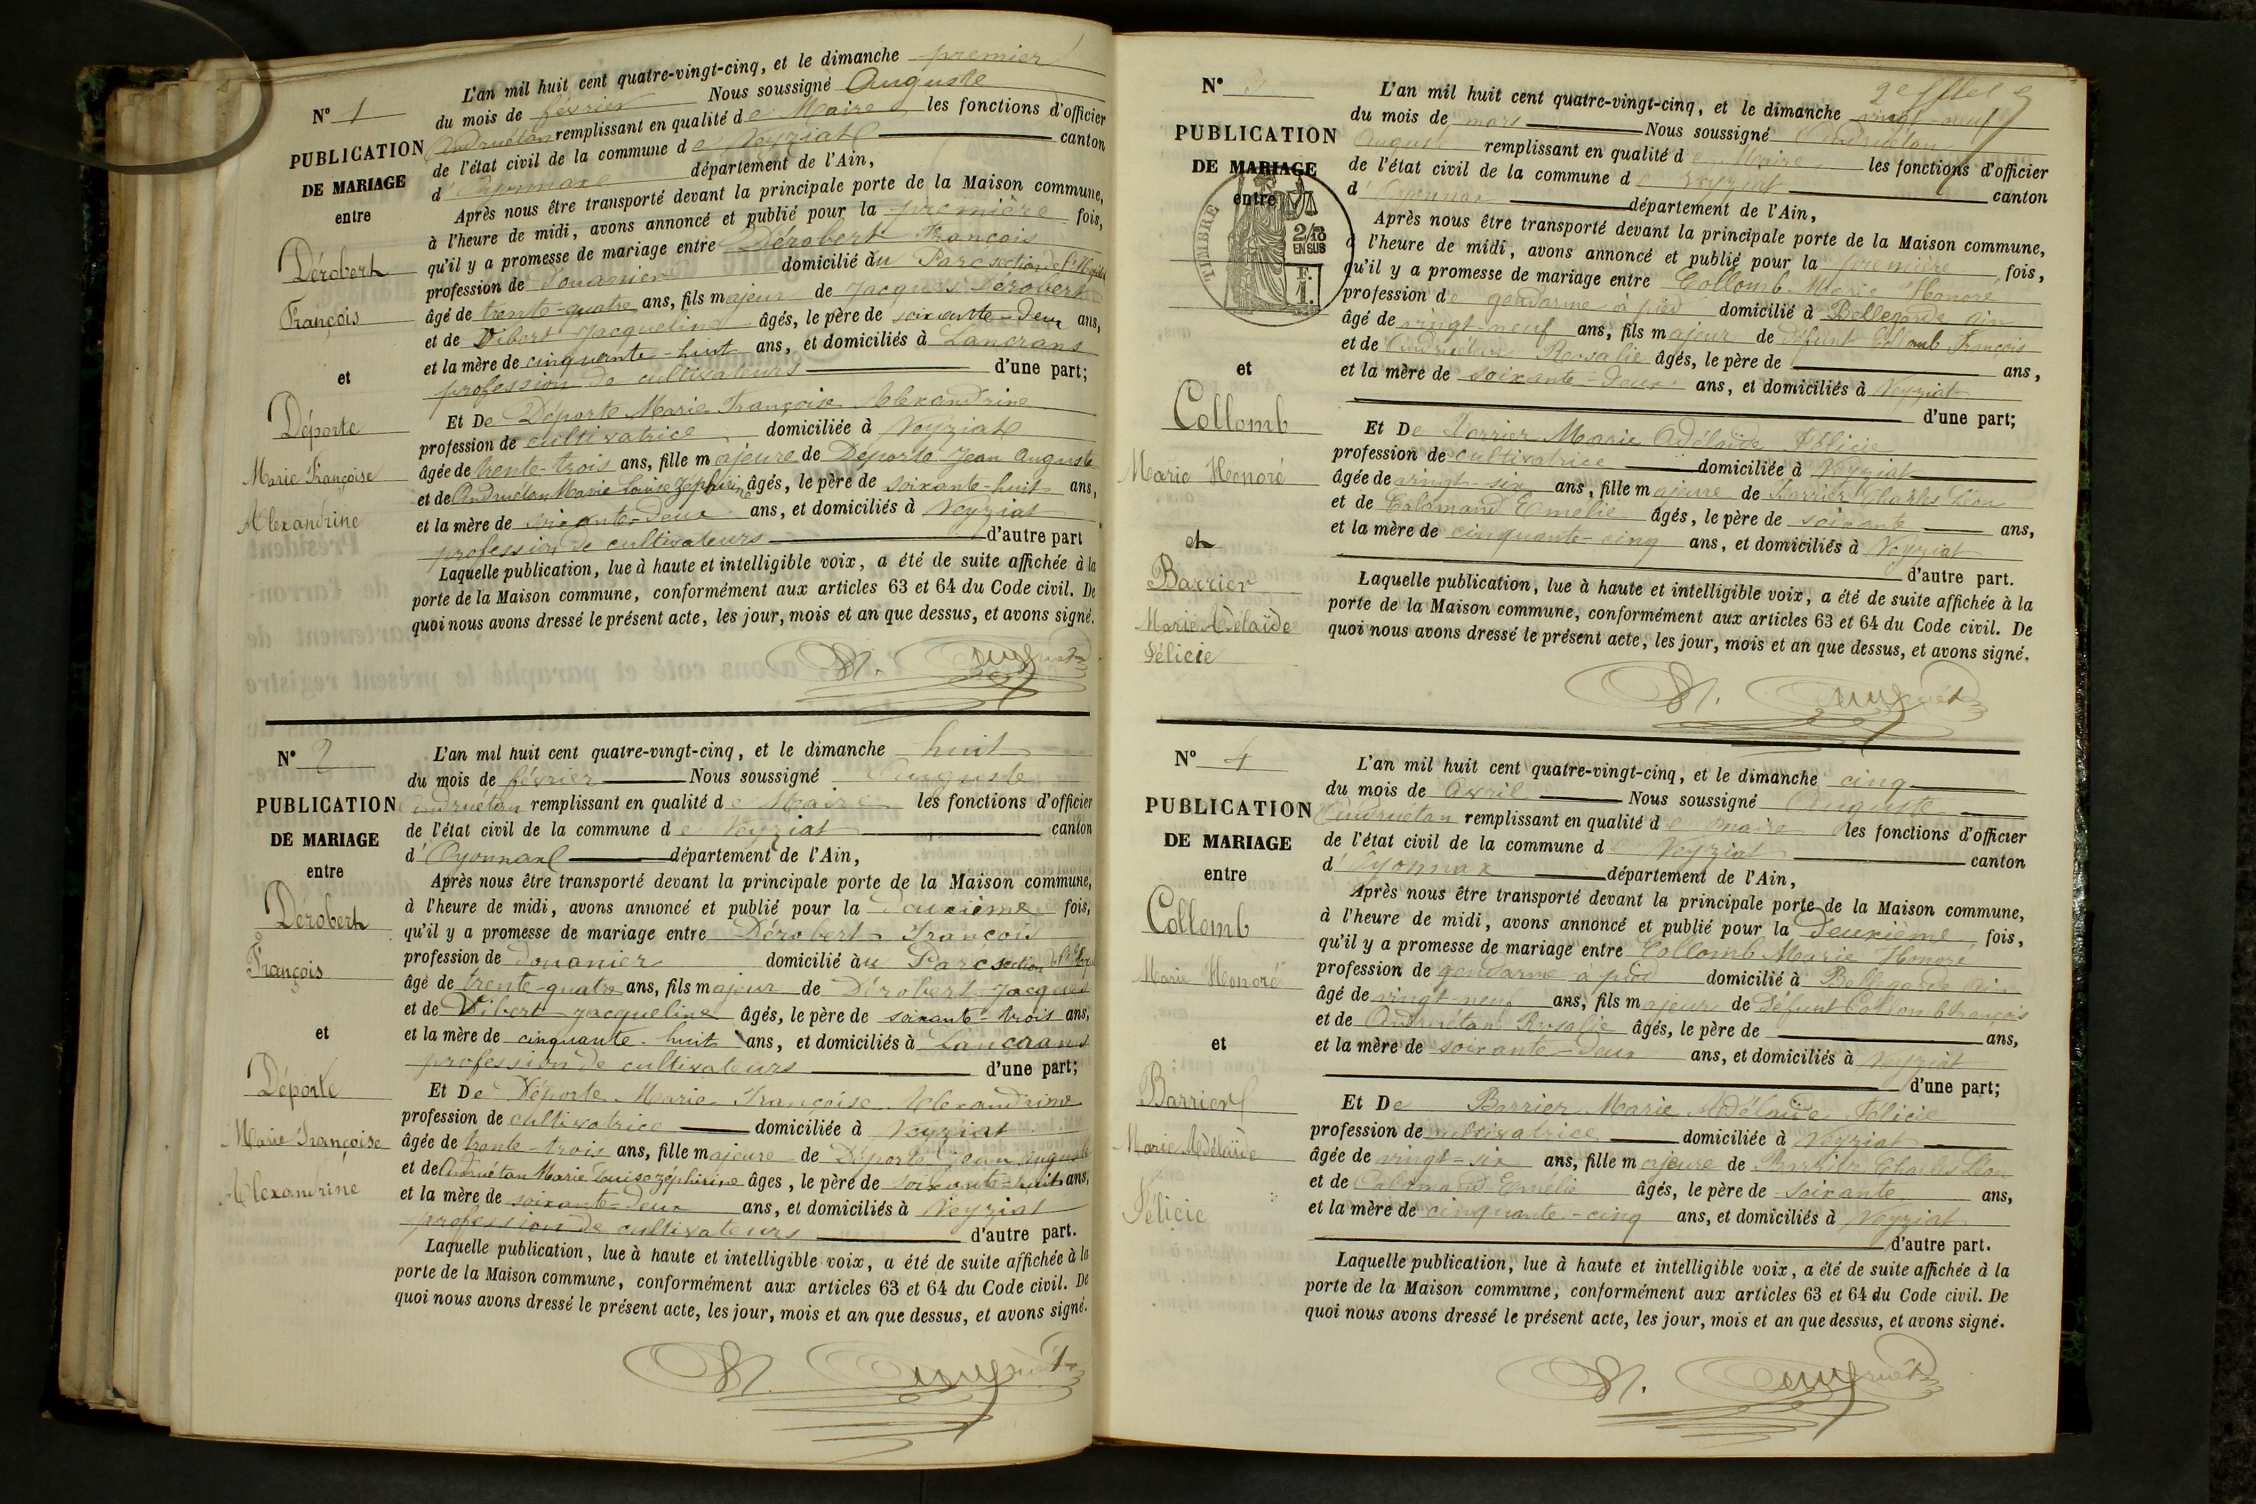 N° 1
PUBLICATION
DE MARIAGE
entre
Dérobert
François
et
Déporte
Marie Françoise
Alexandrine
L'an mil huit cent quatre-vingt-cinq, et le dimanche premier
du mois de février Nous soussigné Auguste
Andruétan remplissant en qualité de Maire les fonctions d'officier
de l'état civil de la commune de Veyziat canton
d'Oyonnax département de l'Ain,
Après nous être transporté devant la principale porte de la Maison commune,
à l'heure de midi, avons annoncé et publié pour la première fois,
qu'il y a promesse de mariage entre Dérobert François
profession de Douanier domicilié au Parc section de
âgé de trente-quatre ans, fils majeur de Jacques Dérobert
et de Vibert Jacqueline âgés, le père de soixante-deux ans,
et la mère de cinquante-huit ans, et domiciliés à Lancrans
profession de cultivateurs d'une part;
Et De Déporte Marie Françoise Alexandrine
profession de cultivatrice domiciliée à Veyziat
âgée de trente-trois ans, fille majeure de Déporte Jean Auguste
et de Andruétan Marie Louise Zéphirine âgés, le père de soixante-huit ans,
et la mère de soixante-deux ans, et domiciliés à Veyziat
profession de cultivateurs d'autre part
Laquelle publication, lue à haute et intelligible voix, a été de suite affichée à la
porte de la Maison commune, conformément aux articles 63 et 64 du Code civil. De
quoi nous avons dressé le présent acte, les jour, mois et an que dessus, et avons signé.
N° 2
PUBLICATION
DE MARIAGE
entre
Dérobert
François
et
Déporte
Marie Françoise
Alexandrine
L'an mil huit cent quatre-vingt-cinq, et le dimanche huit
du mois de février Nous soussigné Auguste
Andruétan remplissant en qualité de Maire les fonctions d'officier
de l'état civil de la commune de Veyziat canton
d'Oyonnax département de l'Ain,
Après nous être transporté devant la principale porte de la Maison commune,
à l'heure de midi, avons annoncé et publié pour la Deuxième fois,
qu'il y a promesse de mariage entre Dérobert François
profession de Douanier domicilié au Parc section
âgé de trente-quatre ans, fils majeur de Dérobert Jacques
et de Vibert Jacqueline âgés, le père de soixante-trois ans,
et la mère de cinquante-huit ans, et domiciliés à Lancrans
profession de cultivateurs d'une part;
Et De Déporte Marie Françoise Alexandrine
profession de cultivatrice domiciliée à Veyziat
âgée de trente-trois ans, fille majeure de Déporte Jean Auguste
et de Andruétan Marie Louise Zéphirine âgés, le père de soixante-huit ans,
et la mère de soixante-deux ans, et domiciliés à Veyziat
profession de cultivateurs d'autre part.
Laquelle publication, lue à haute et intelligible voix, a été de suite affichée à la
porte de la Maison commune, conformément aux articles 63 et 64 du Code civil. De
quoi nous avons dressé le présent acte, les jour, mois et an que dessus, et avons signé.
2e
N° 3
PUBLICATION
DE MARIAGE
entre
TIMBRE
2/10
EN SUS
Collomb
Marie Honoré
et
Barrier
Marie Adélaïde
Félicie
L'an mil huit cent quatre-vingt-cinq, et le dimanche vingt-neuf
du mois de mars Nous soussigné Andruétan
Auguste remplissant en qualité de Maire les fonctions d'officier
de l'état civil de la commune de Veyziat canton
d'Oyonnax département de l'Ain,
Après nous être transporté devant la principale porte de la Maison commune,
à l'heure de midi, avons annoncé et publié pour la première fois,
qu'il y a promesse de mariage entre Collomb Marie Honoré
profession de gendarme à pied domicilié à Bellegarde Ain
âgé de vingt-neuf ans, fils majeur de défunt Collomb François
et de Andruétan Rosalie âgés, le père de ans,
et la mère de soixante-deux ans, et domiciliés à Veyziat
d'une part;
Et De Barrier Marie Adélaïde Félicie
profession de cultivatrice domiciliée à Veyziat
âgée de vingt-six ans, fille majeure de Barrier Charles Léon
et de Calamand Emélie âgés, le père de soixante ans,
et la mère de cinquante-cinq ans, et domiciliés à Veyziat
d'autre part.
Laquelle publication, lue à haute et intelligible voix, a été de suite affichée à la
porte de la Maison commune, conformément aux articles 63 et 64 du Code civil. De
quoi nous avons dressé le présent acte, les jour, mois et an que dessus, et avons signé.
N° 4
PUBLICATION
DE MARIAGE
entre
Collomb
Marie Honoré
et
Barrier
Marie Adélaïde
Félicie
L'an mil huit cent quatre-vingt-cinq, et le dimanche cinq
du mois de Avril Nous soussigné Auguste
Andruétan remplissant en qualité de maire les fonctions d'officier
de l'état civil de la commune de Veyziat canton
d'Oyonnax département de l'Ain,
Après nous être transporté devant la principale porte de la Maison commune,
à l'heure de midi, avons annoncé et publié pour la Deuxième fois,
qu'il y a promesse de mariage entre Collomb Marie Honoré
profession de gendarme à pied domicilié à Bellegarde Ain
âgé de vingt-neuf ans, fils majeur de Défunt Collomb François
et de Andruétan Rosalie âgés, le père de ans,
et la mère de soixante-deux ans, et domiciliés à Veyziat
d'une part;
Et De Barrier Marie Adélaïde Félicie
profession de cultivatrice domiciliée à Veyziat
âgée de vingt-six ans, fille majeure de Barrier Charles Léon
et de Calamand Emélie âgés, le père de soixante ans,
et la mère de cinquante-cinq ans, et domiciliés à Veyziat
d'autre part.
Laquelle publication, lue à haute et intelligible voix, a été de suite affichée à la
porte de la Maison commune, conformément aux articles 63 et 64 du Code civil. De
quoi nous avons dressé le présent acte, les jour, mois et an que dessus, et avons signé.